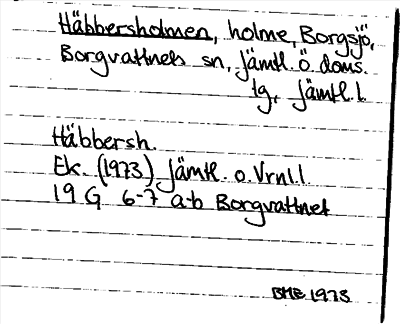 Häbbersholmen, holme, Borgsjö,
Borgvattnets sn, Jämtl. ö. doms.
tg, Jämtl. l.
Häbbersh.
Ek. (1973) Jämtl. o. Vrnl. l.
19 G 6-7 a-b Borgvattnet
BME 1973